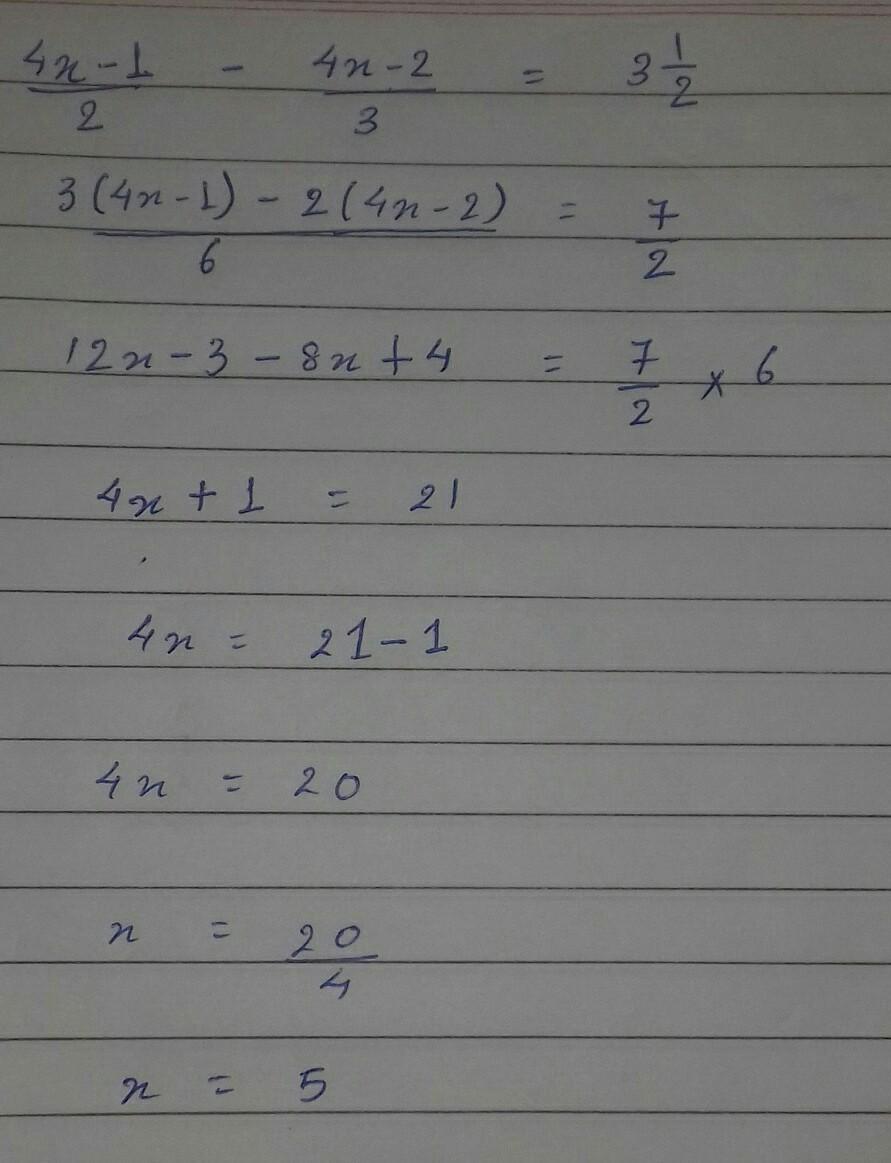 (4x-1)/2 - (4x-2)/3 = 3 1/2
(3(4x-1) - 2(4x-2))/6 = 7/2
12x - 3 - 8x + 4 = 7/2 × 6
4x + 1 = 21
4x = 21 - 1
4x = 20
x = 20/4
x = 5